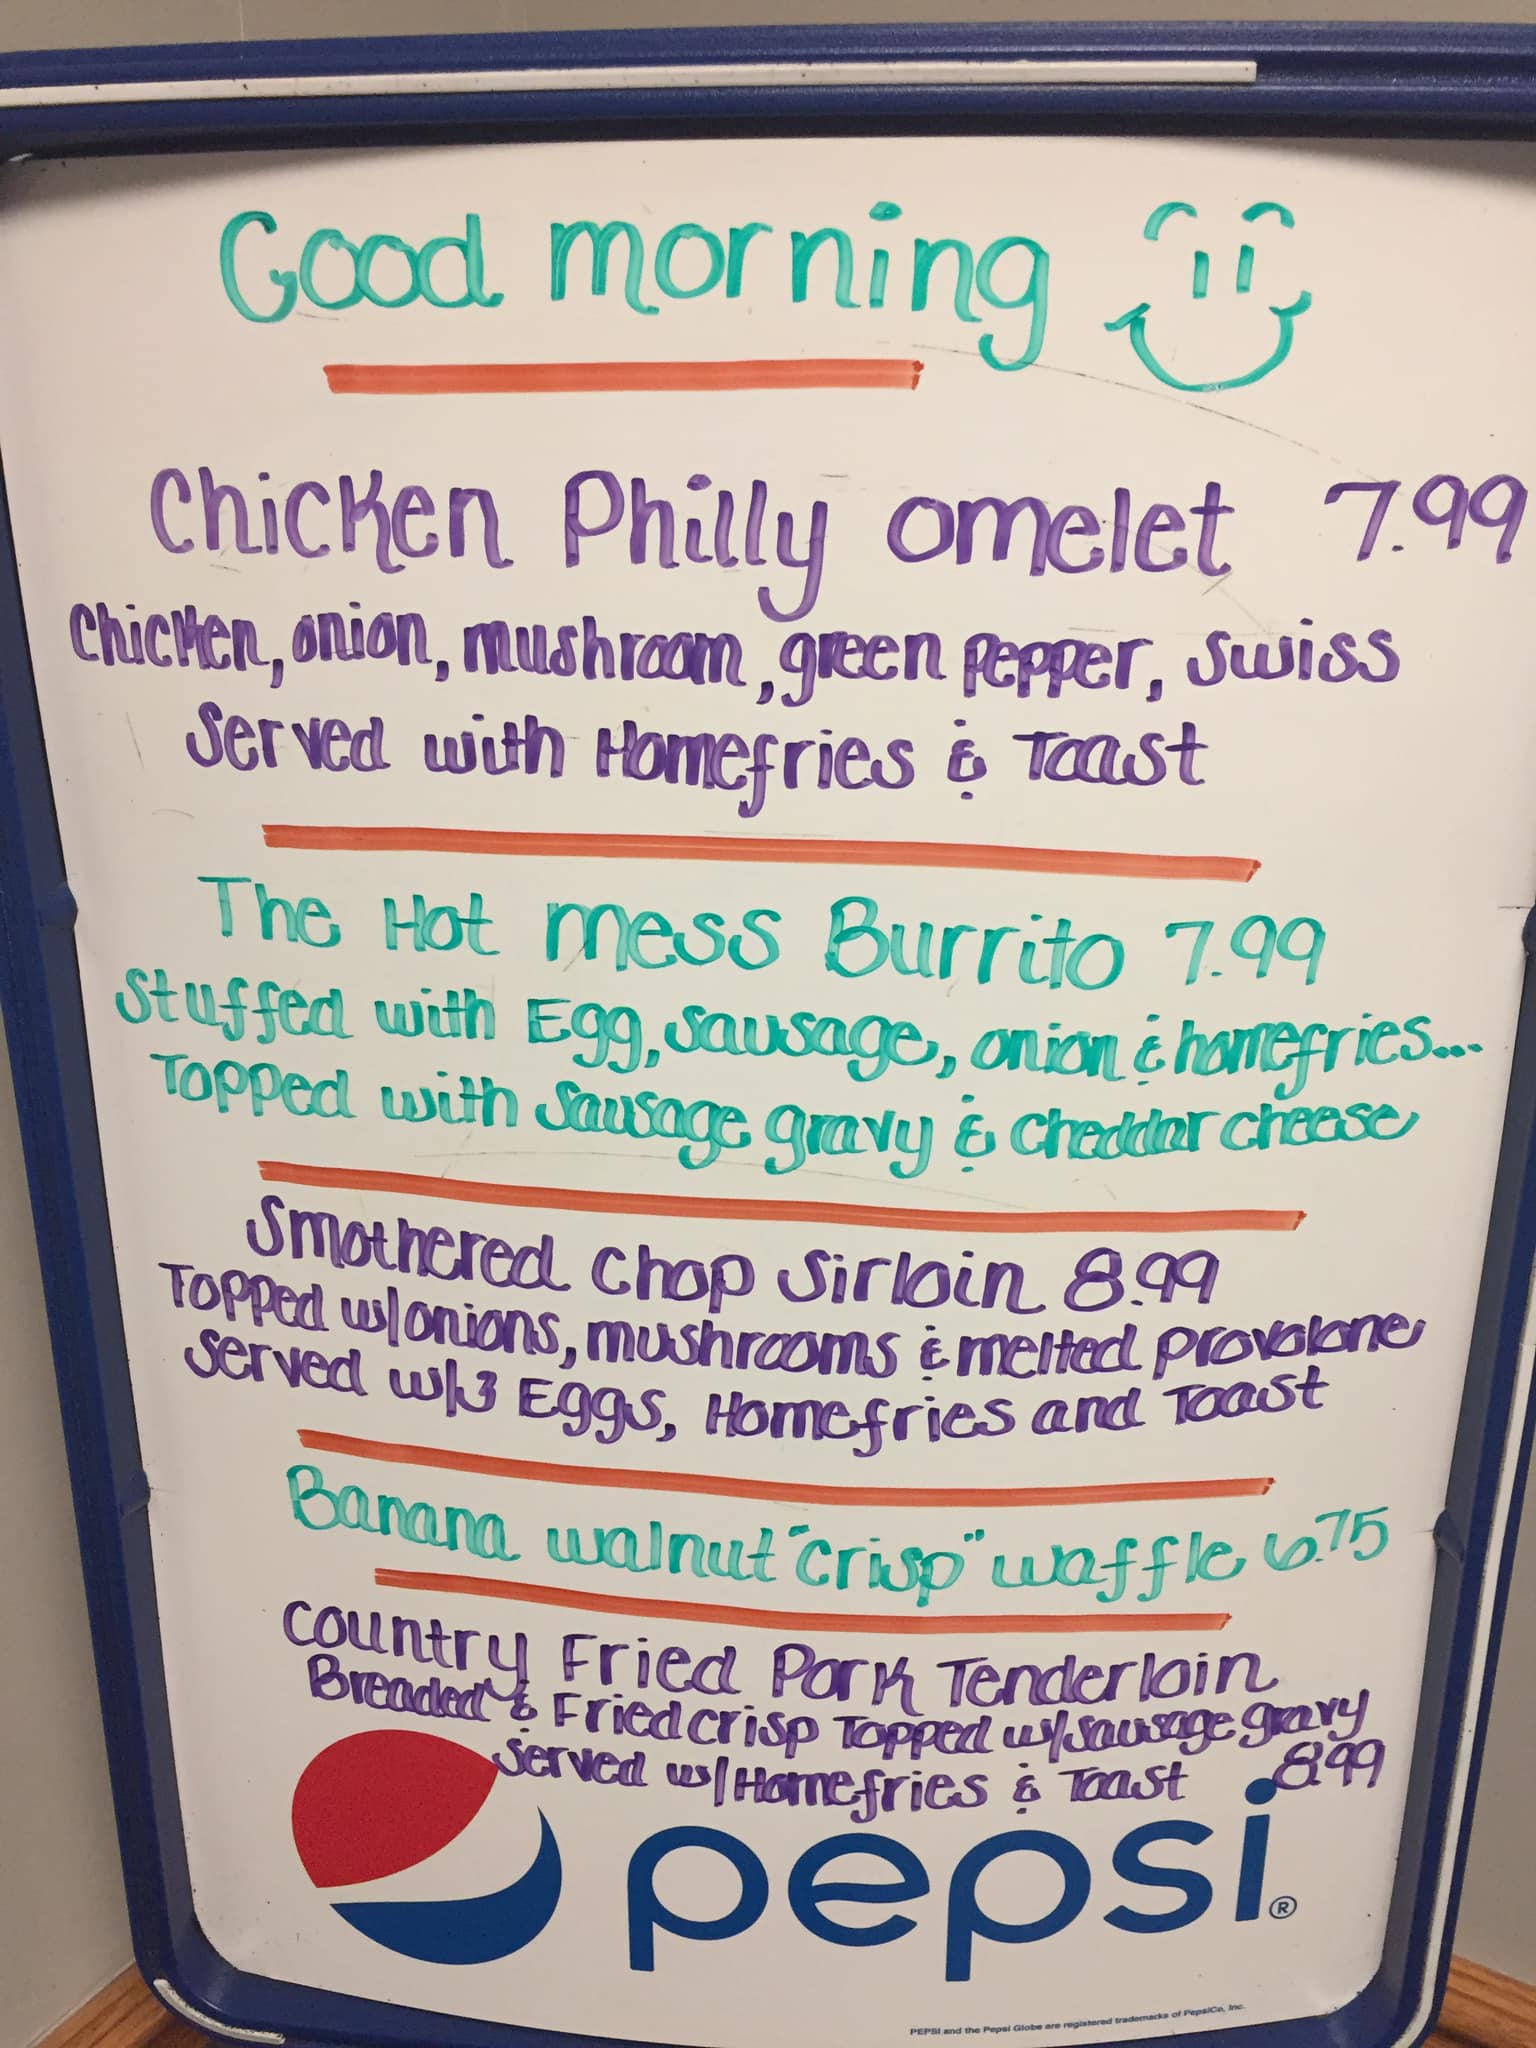 Good morning
Chicken Philly omelet 7.99
Chicken, onion, mushroom, green pepper, swiss
Served with Homefries & Toast
The Hot mess Burrito 7.99
Stuffed with Egg, sausage, onion & homefries...
Topped with Sausage gravy & cheddar cheese
Smothered Chop Sirloin 8.99
Topped w/onions, mushrooms & melted provolone
Served w/3 Eggs, Homefries and Toast
Banana walnut "crisp" waffle 6.75
Country Fried Pork Tenderloin
Breaded & Fried crisp Topped w/sausage gravy
Served w/Homefries & Toast 8.99
pepsi®
PEPSI and the Pepsi Globe are registered trademarks of PepsiCo, Inc.